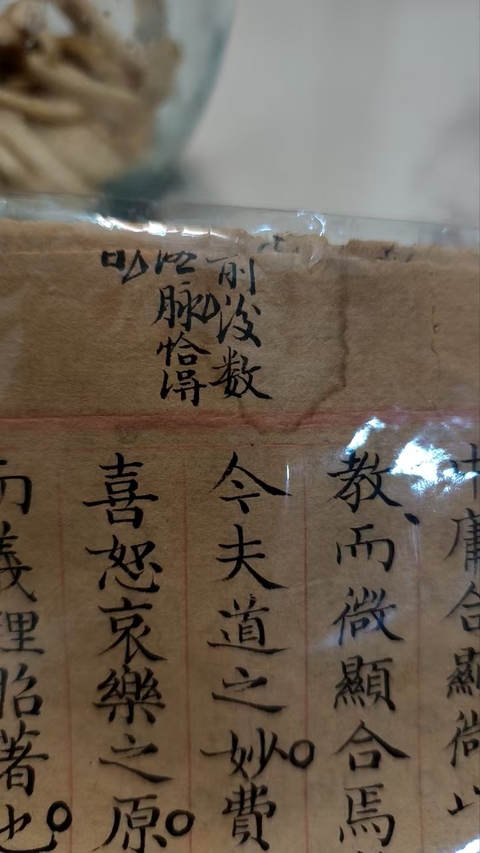 前後數
脈恰得
中庸合顯微
教而微顯合焉
今夫道之妙費
喜怒哀樂之原
而義理昭著也